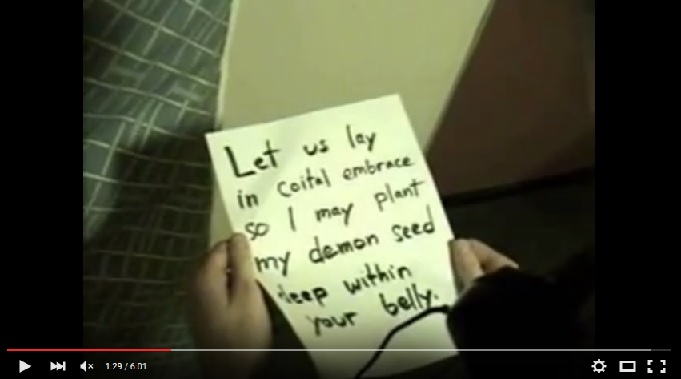 Let us lay
in coital embrace
so I may plant
my demon seed
deep within
your belly.
1:29 / 6:01